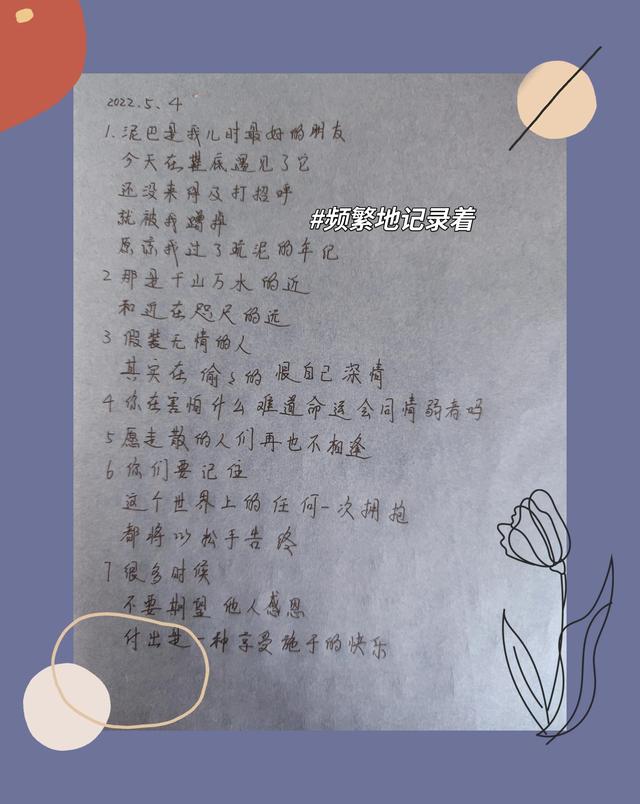 2022.5.4
1. 泥巴是我儿时最好的朋友
今天在鞋底遇见了它
还没来得及打招呼
就被我蹭掉
#频繁地记录着
原谅我过了玩泥的年纪
2 那是千山万水的近
和近在咫尺的远
3 假装无情的人
其实在偷偷的恨自己深情
4 你在害怕什么难道命运会同情弱者吗
5 愿走散的人们再也不相逢
6 你们要记住
这个世界上的任何一次拥抱
都将以松手告终
7 很多时候
不要期望他人感恩
付出是一种享受施予的快乐